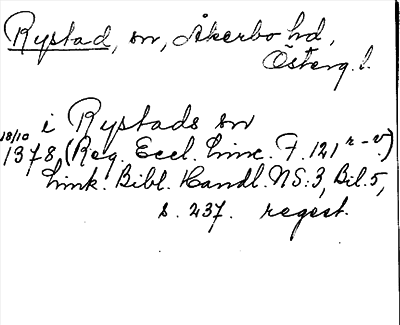 Rystad, sn, Åkerbo hd,
Österg. l.
i Rystads sn
18/10
1378, (Reg. Eccl. Linc. F. 121 r-v.)
Link. Bibl. Handl. NS:3, Bil. 5,
s. 237. regest.